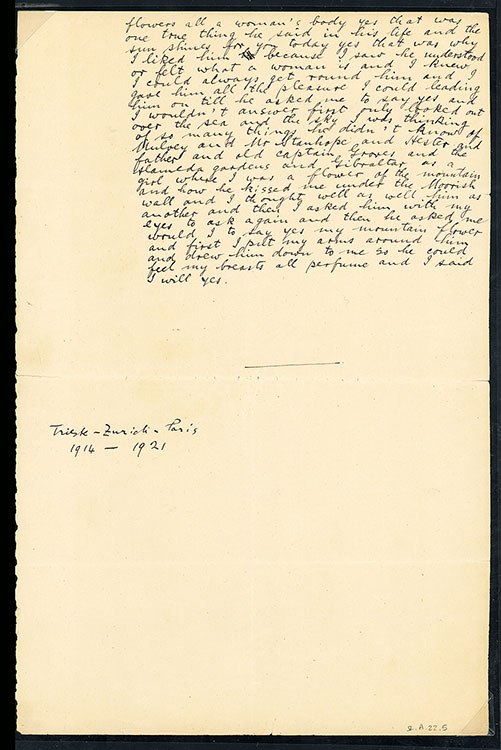 flowers all a woman's body yes that was
one true thing he said in his life and the
sun shines for you today yes that was why
I liked him because I saw he understood
or felt what a woman is and I knew
I could always get round him and I
gave him all the pleasure I could leading
him on till he asked me to say yes and
I wouldn't answer first only looked out
over the sea and the sky I was thinking
of so many things he didn't know of
Mulvey and Mr Stanhope and Hester and
father and old captain Groves and the
Alameda gardens and Gibraltar as a
girl where I was a flower of the mountain
and how he kissed me under the Moorish
wall and I thought well as well him as
another and then I asked him with my
eyes to ask again and then he asked me
would I to say yes my mountain flower
and first I put my arms around him
and drew him down to me so he could
feel my breasts all perfume and I said
I will yes.
Trieste - Zurich - Paris
1914 — 1921
2.A.22.5